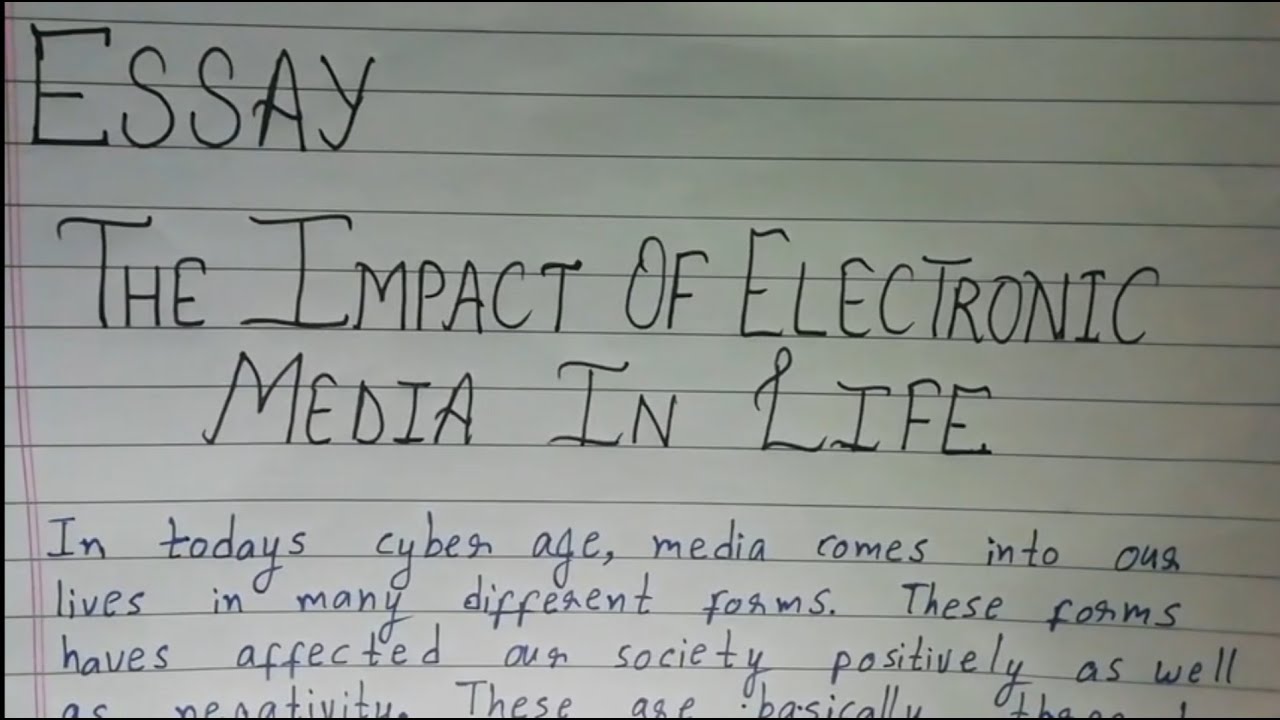 ESSAY
THE IMPACT OF ELECTRONIC
MEDIA IN LIFE
In todays cyber age, media comes into our
lives in many different forms. These forms
haves affected our society positively as well
as negativity. These are basically